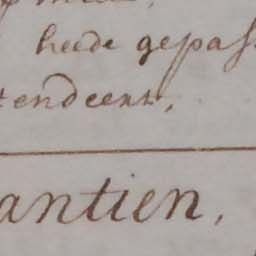 heede gepas
tendeert,
antien,